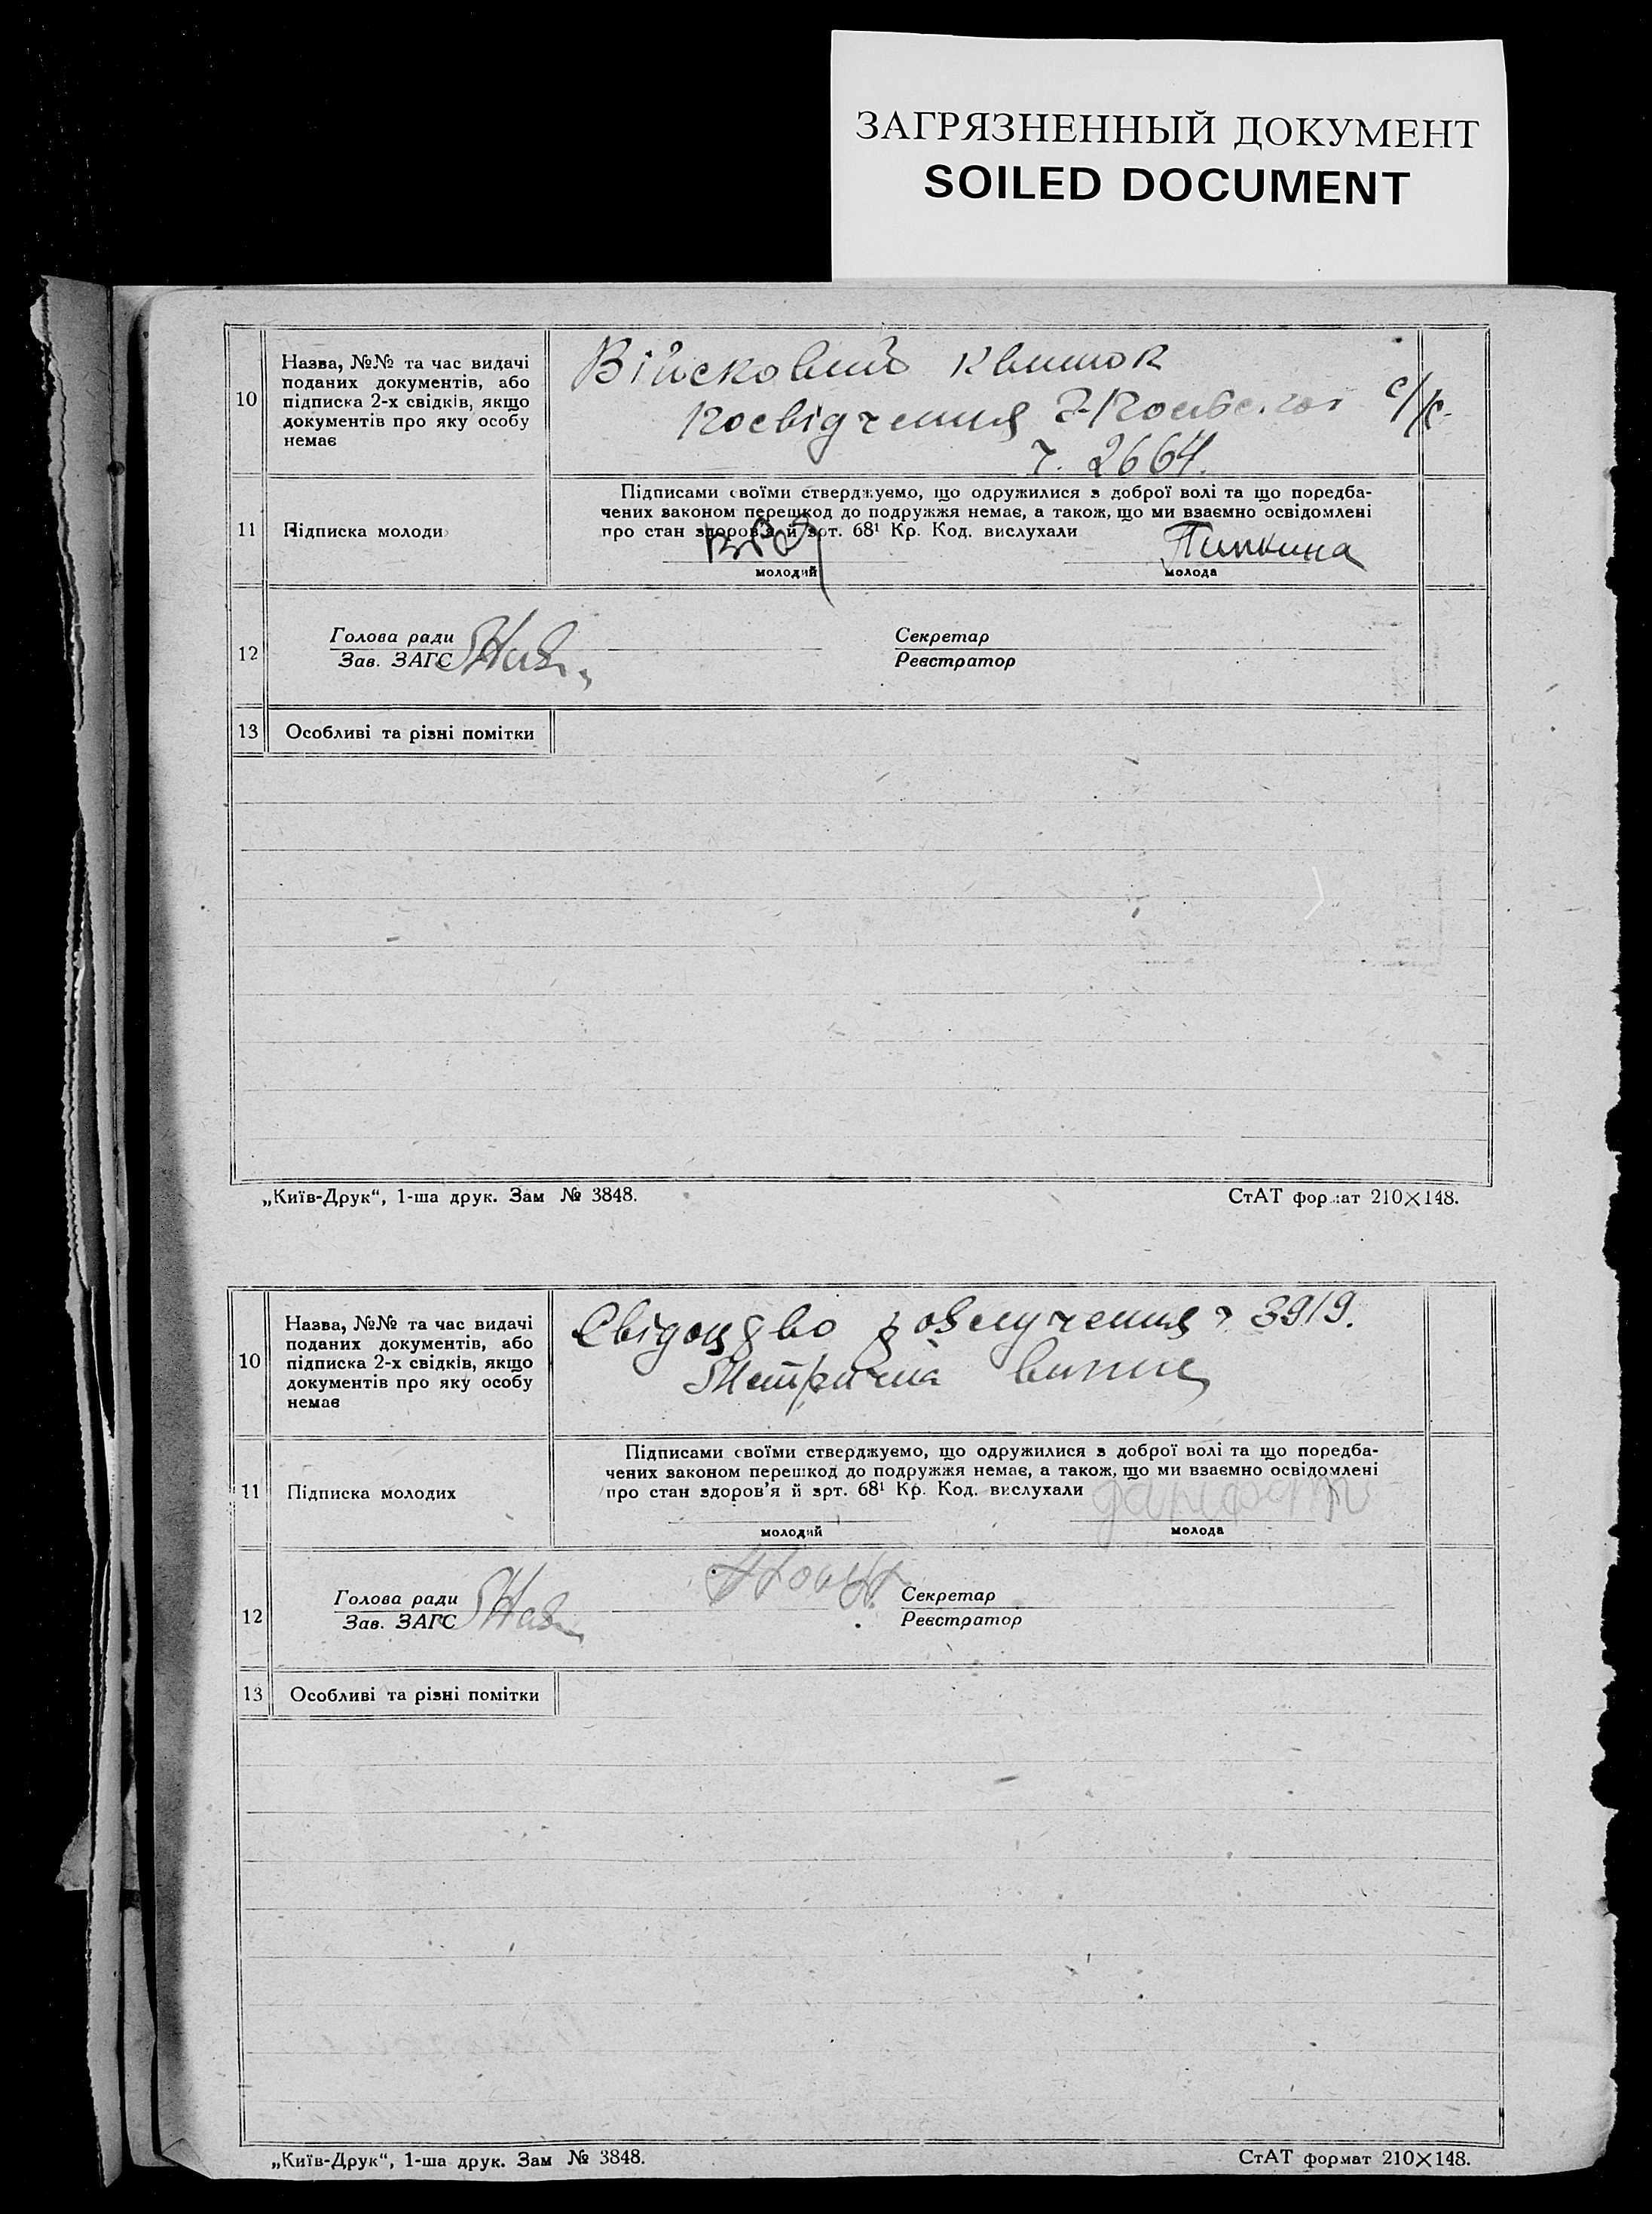 ЗАГРЯЗНЕННЫЙ ДОКУМЕНТ
SOILED DOCUMENT
10
Назва, №№ та час видачі
поданих документів, або
підписка 2-х свідків, якщо
документів про яку особу
немає
Військовий квиток
Посвідчення с/р.
ч. 2664.
11
Підписка молоди
Підписами своїми стверджуємо, що одружилися з доброї волі та що передба-
чених законом перешкод до подружжя немає, а також, що ми взаємно освідомлені
про стан здоров'я й арт. 68¹ Кр. Код. вислухали
Пипкина
молодий
молода
12
Голова ради
Зав. ЗАГС
Секретар
Реєстратор
13
Особливі та різні помітки
„Київ-Друк“, 1-ша друк. Зам № 3848.
СтАТ формат 210×148.
10
Назва, №№ та час видачі
поданих документів, або
підписка 2-х свідків, якщо
документів про яку особу
немає
ч 3919.
Метрична
11
Підписка молодих
Підписами своїми стверджуємо, що одружилися з доброї волі та що передба-
чених законом перешкод до подружжя немає, а також, що ми взаємно освідомлені
про стан здоров'я й арт. 68¹ Кр. Код. вислухали
молодий
молода
12
Голова ради
Зав. ЗАГС
Секретар
Реєстратор
13
Особливі та різні помітки
„Київ-Друк“, 1-ша друк. Зам № 3848.
СтАТ формат 210×148.